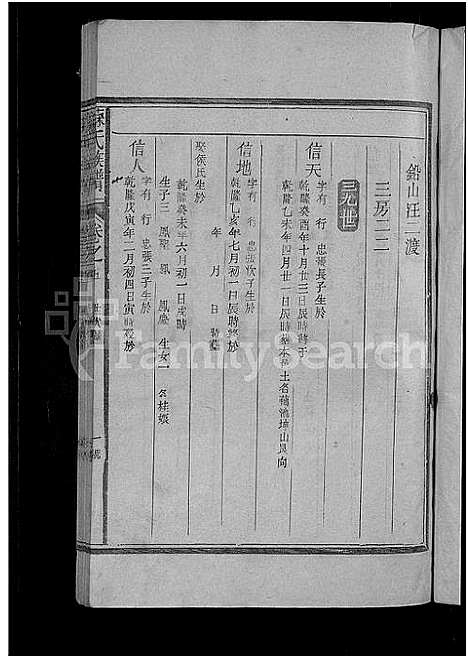 鉛山汪二渡
三房二二
三九世
信天
字有 行 忠張長子生於
乾隆癸酉年十月廿三日辰時終于
乾隆乙未年四月廿一日辰時葬本 土名 山艮向
信地
字有 行 忠張次子生於
乾隆乙亥年七月初一日辰時終於
年 月 日 時葬
娶侯氏生於
乾隆癸未年六月初一日戌時
生子三 鳳 鳳 鳳慶 生女一 名桂娘
信人
字有 行 忠張三子生於
乾隆戊寅年二月初四日寅時終於
氏族譜
卷之
FamilySearch